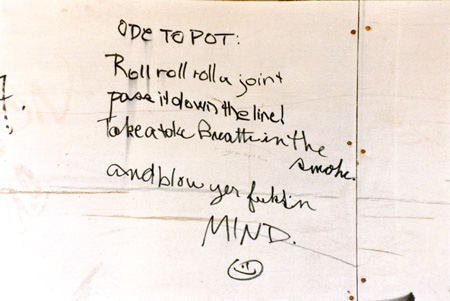 ODE TO POT:
Roll roll roll a joint
pass it down the line!
Take a toke Breathe in the
smoke.
and blow yer fukkin
MIND.